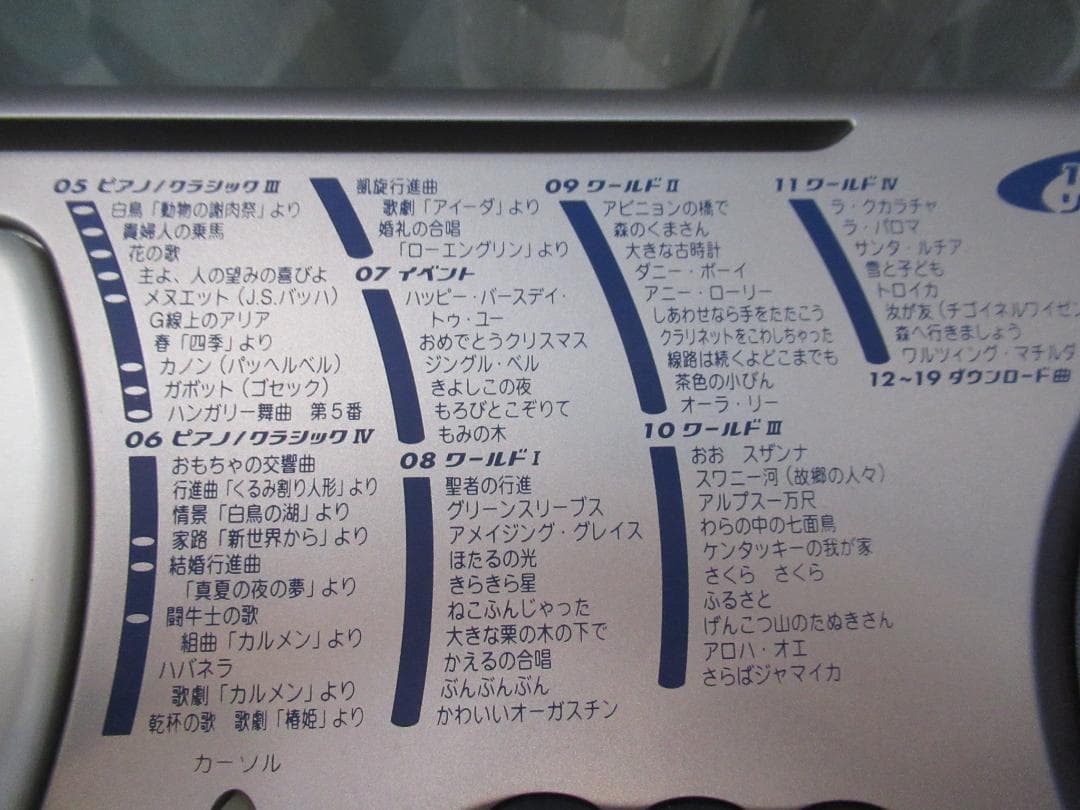 05 ピアノ/クラシックⅢ
白鳥「動物の謝肉祭」より
貴婦人の乗馬
花の歌
主よ、人の望みの喜びよ
メヌエット(J.S.バッハ)
G線上のアリア
春「四季」より
カノン(パッヘルベル)
ガボット(ゴセック)
ハンガリー舞曲 第5番
06 ピアノ/クラシックⅣ
おもちゃの交響曲
行進曲「くるみ割り人形」より
情景「白鳥の湖」より
家路「新世界から」より
結婚行進曲
「真夏の夜の夢」より
闘牛士の歌
組曲「カルメン」より
ハバネラ
歌劇「カルメン」より
乾杯の歌 歌劇「椿姫」より
カーソル
凱旋行進曲
歌劇「アイーダ」より
婚礼の合唱
「ローエングリン」より
07 イベント
ハッピー・バースデイ・
トゥ・ユー
おめでとうクリスマス
ジングル・ベル
きよしこの夜
もろびとこぞりて
もみの木
08 ワールドⅠ
聖者の行進
グリーンスリーブス
アメイジング・グレイス
ほたるの光
きらきら星
ねこふんじゃった
大きな栗の木の下で
かえるの合唱
ぶんぶんぶん
かわいいオーガスチン
09 ワールドⅡ
アビニョンの橋で
森のくまさん
大きな古時計
ダニー・ボーイ
アニー・ローリー
しあわせなら手をたたこう
クラリネットをこわしちゃった
線路は続くよどこまでも
茶色の小びん
オーラ・リー
10 ワールドⅢ
おお スザンナ
スワニー河(故郷の人々)
アルプス一万尺
わらの中の七面鳥
ケンタッキーの我が家
さくら さくら
ふるさと
げんこつ山のたぬきさん
アロハ・オエ
さらばジャマイカ
11 ワールドⅣ
ラ・クカラチャ
ラ・パロマ
サンタ・ルチア
雪と子ども
トロイカ
汝が友(チゴイネルワイゼン
森へ行きましょう
ワルツィング・マチルダ
12~19 ダウンロード曲